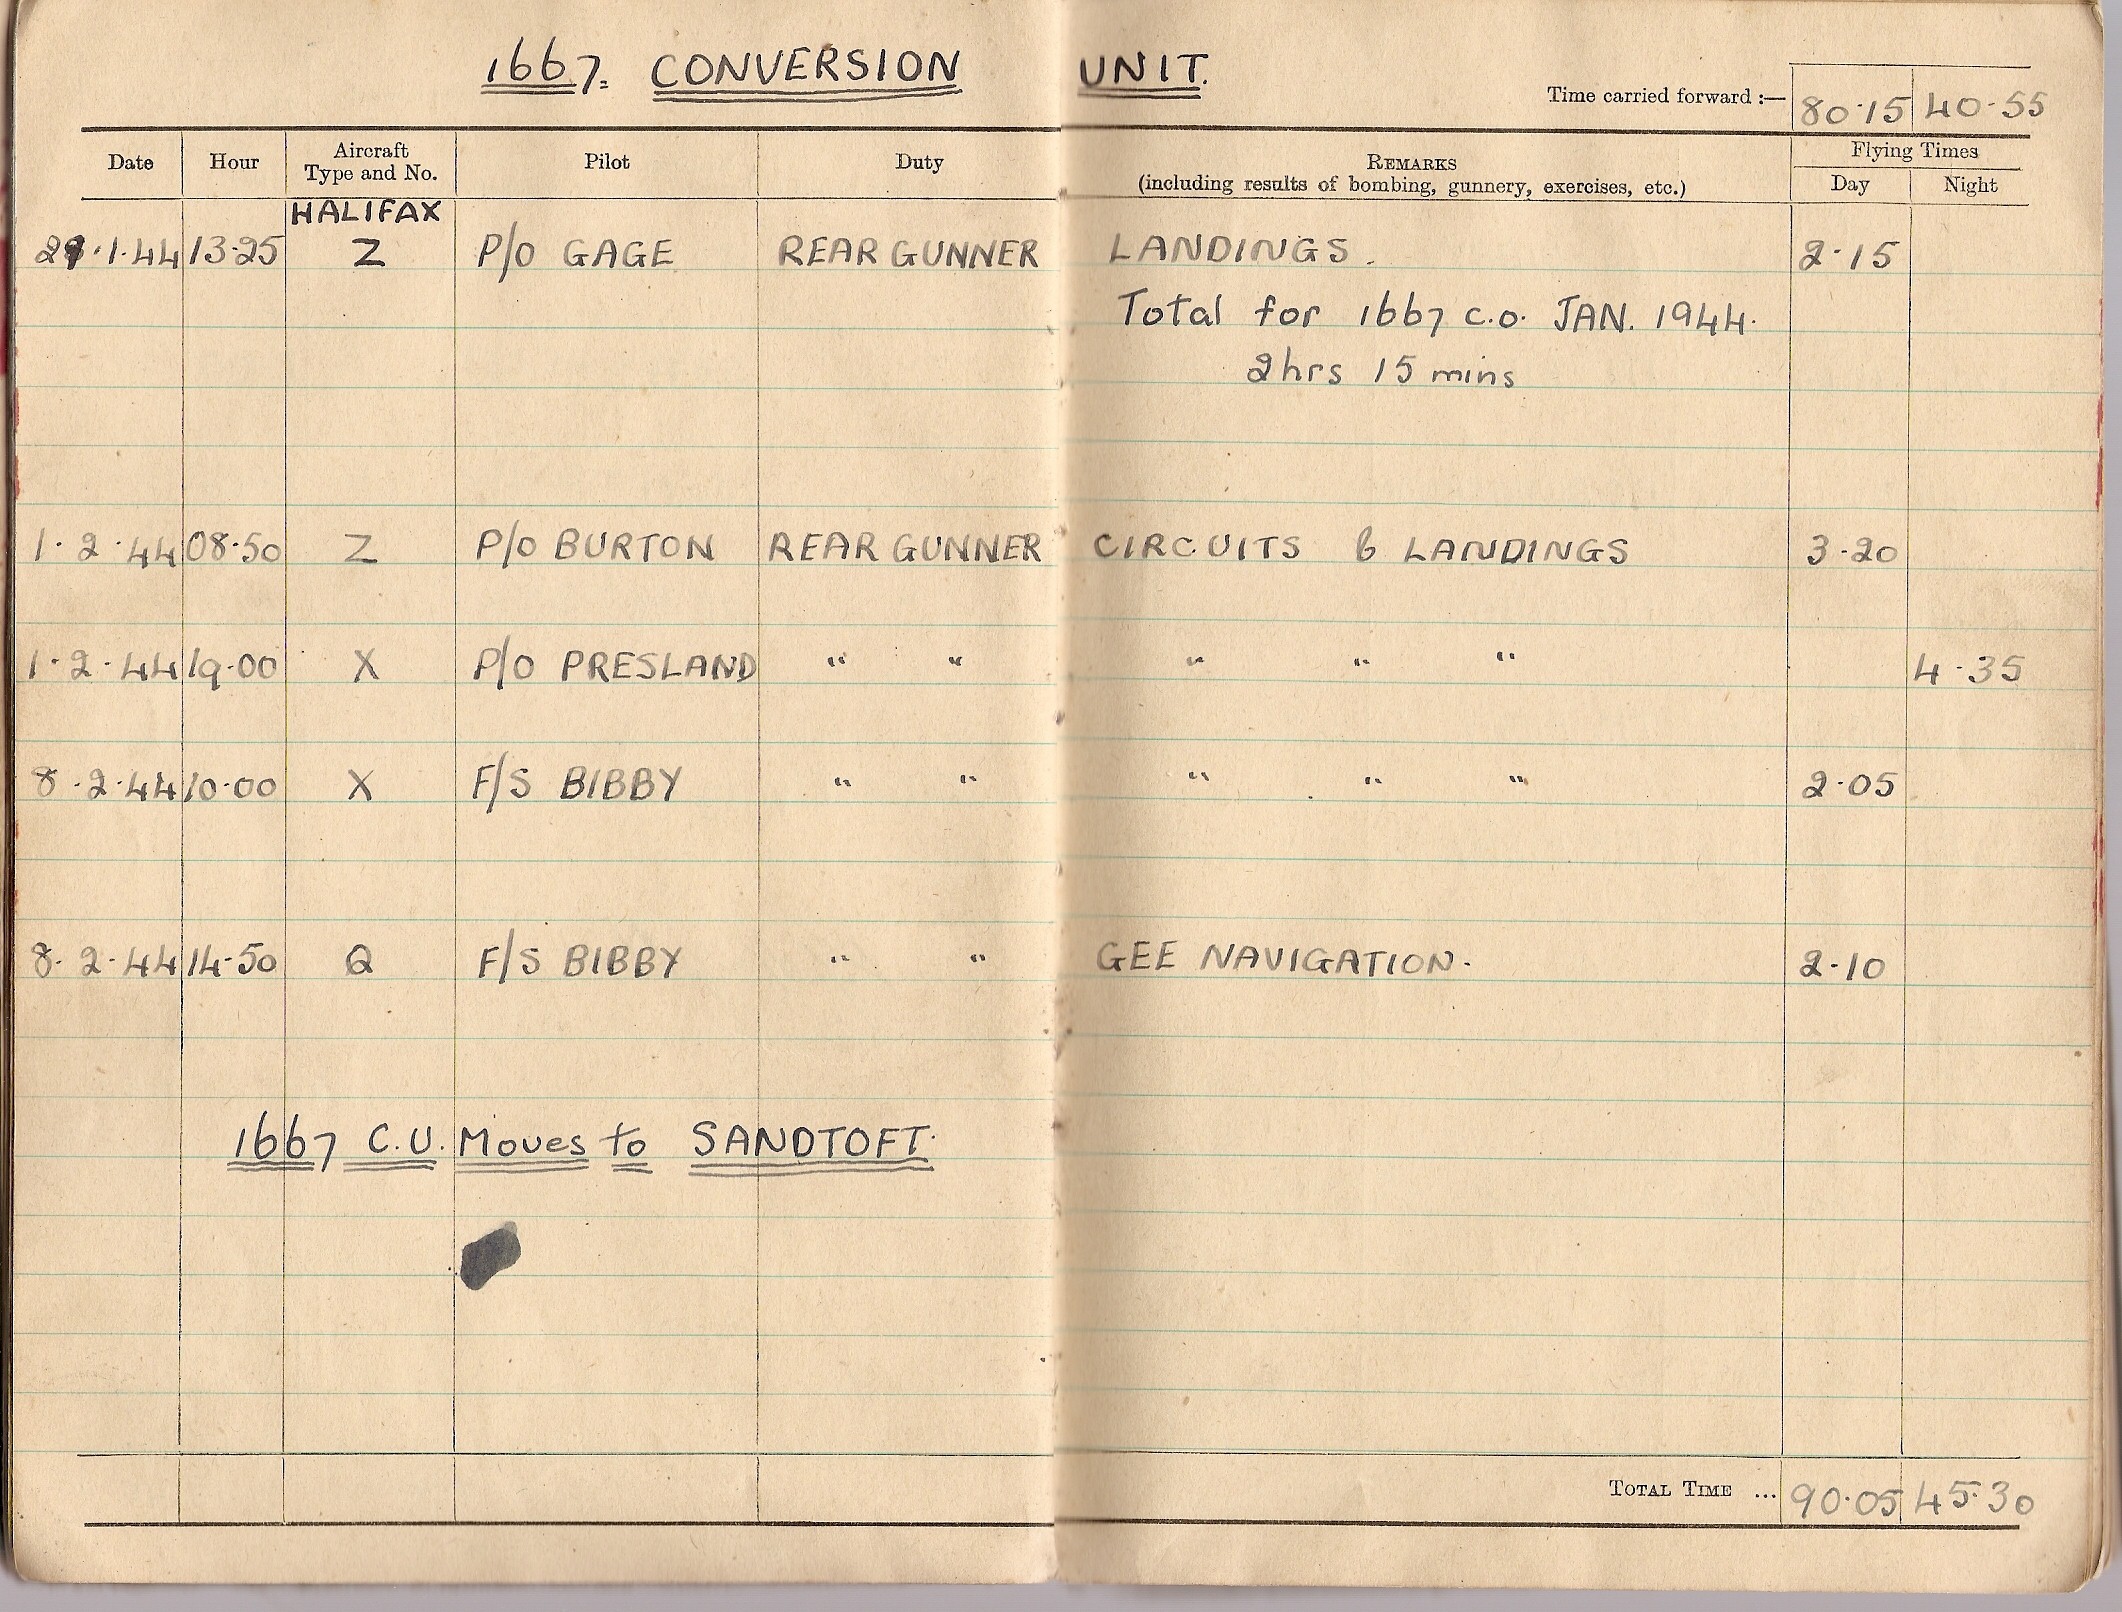 1667. CONVERSION UNIT.
Time carried forward :— 80·15 40·55
Date Hour Aircraft Type and No. Pilot Duty REMARKS (including results of bombing, gunnery, exercises, etc.) Flying Times Day Night
HALIFAX
·1·44 13·25 Z P/O GAGE REAR GUNNER LANDINGS. 2·15
Total for 1667 C.O. JAN. 1944.
2hrs 15 mins
1·2·44 08·50 Z P/O BURTON REAR GUNNER CIRCUITS & LANDINGS 3·20
1·2·44 19·00 X P/O PRESLAND " " " " " 4·35
8·2·44 10·00 X F/S BIBBY " " " " " 2·05
8·2·44 14·50 Q F/S BIBBY " " GEE NAVIGATION. 2·10
1667 C.U. Moves to SANDTOFT.
TOTAL TIME ... 90·05 45·30